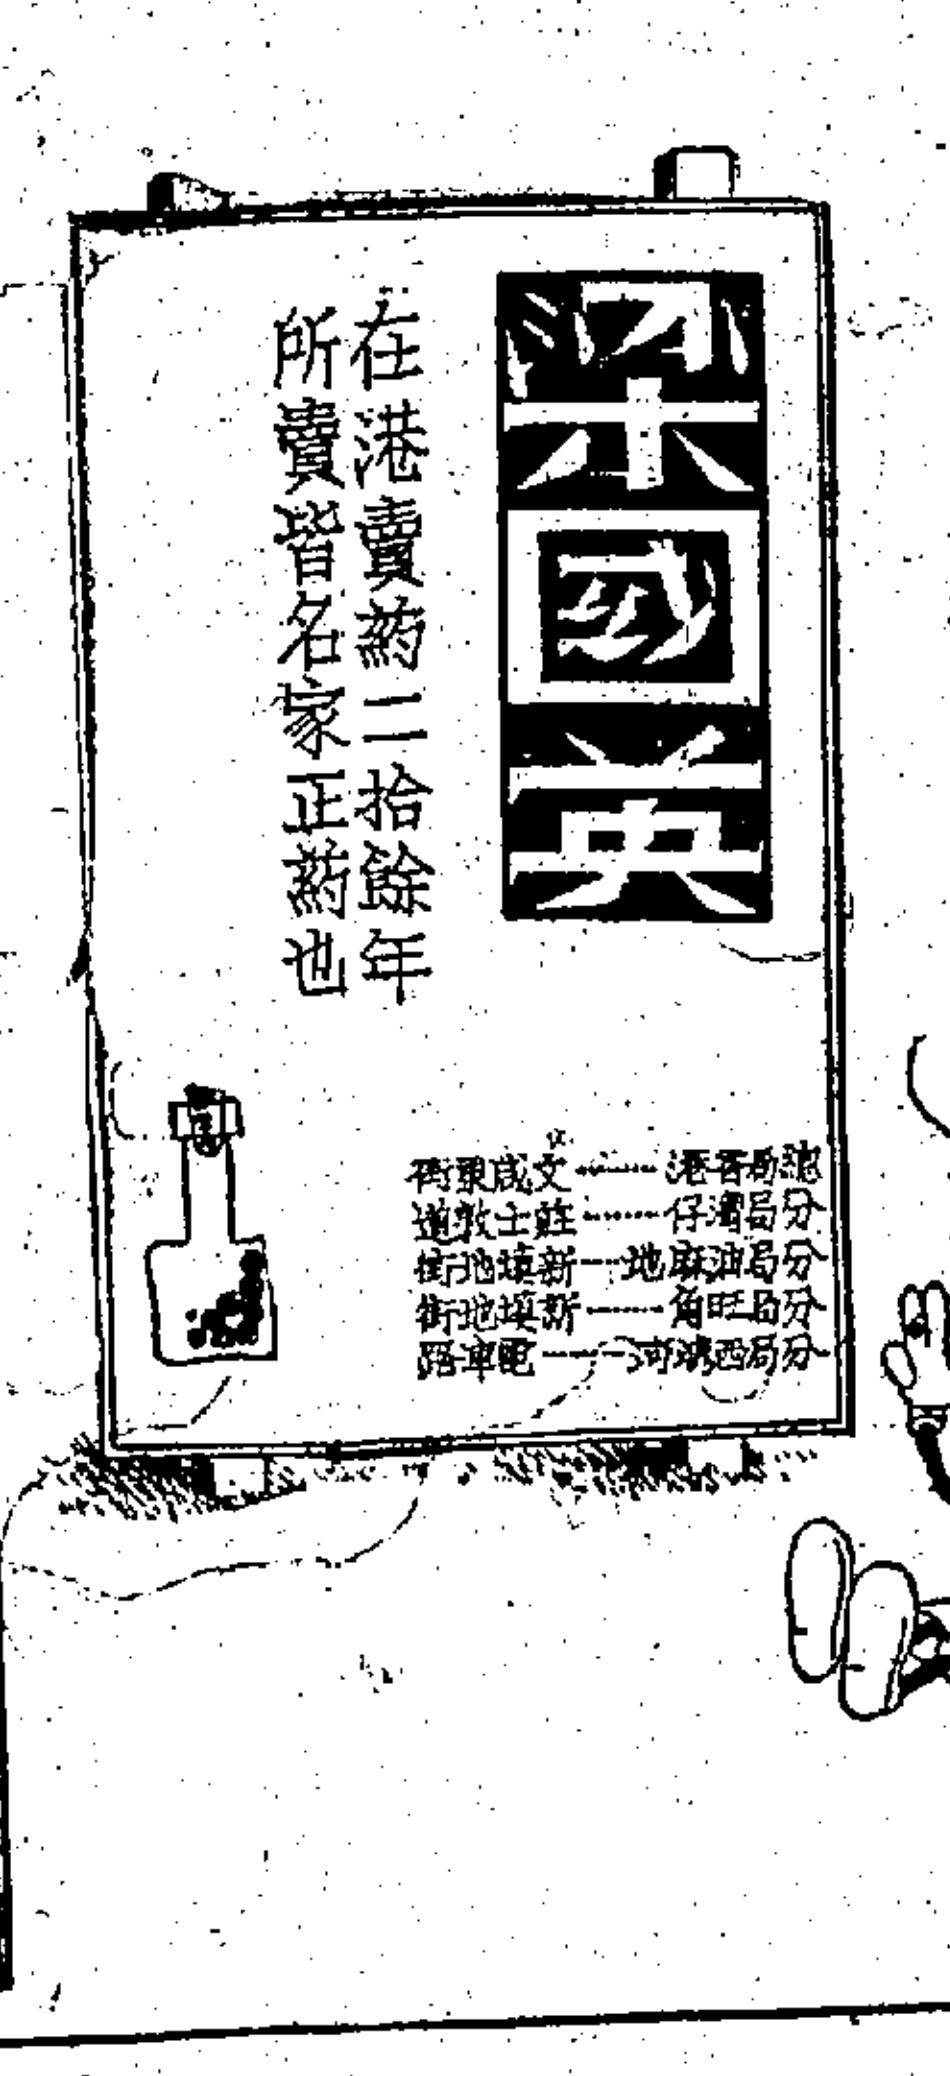 梁國英
在港賣葯二拾餘年
所賣皆名家正葯也
總局香港……文咸東街
分局灣仔……莊士敦道
分局油麻地…新填地街
分局旺角……新填地街
分局西濠河……電車路